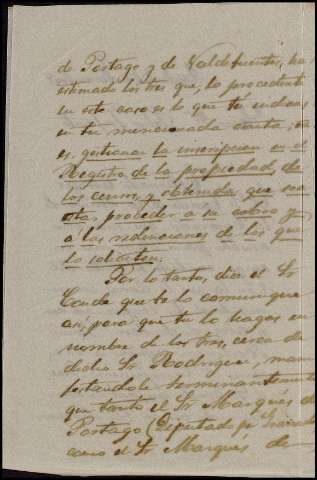 de Portago y de Valdefuentes, ha
estimado los tres que, lo procedente
en este caso es lo que tu indicas
en tu mencionada carta; es
es gestionar la inscripcion en el
Registro de la propiedad, de
los censos, y obtenida que sea
esta, proceder a su cobro y
á las redenciones de los que
lo soliciten.
Por lo tanto, dice el Sr
Conde que te lo comunique
asi, para que tu lo hagas en
nombre de los tres, cerca de
dicho Sr Rodriguez, mani
festandole terminantemente
que tanto el Sr Marqués de
Portago (Diputado por
como el Sr Marqués de